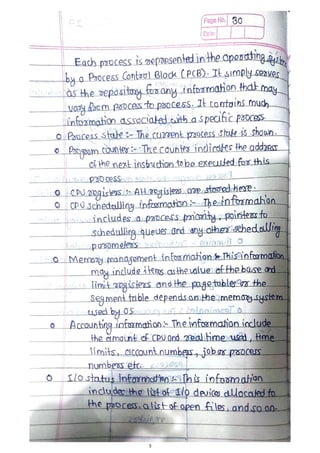 Page No. 30
Date
Each process is represented in the operating system
by a Process Control Block (PCB). It simply serves
as the repository for any information that may
vary from process to process. It contains much
information associated with a specific process
o Process state :- The current process state is shown.
o Program counter :- The counter indicates the address
of the next instruction to be executed for this
process
o CPU registers :- All registers are stored here.
o CPU schedulling information :- The information
includes a process priority, pointers to
schedulling queues and any other schedulling
parameters
o Memory management information :- This information
may include items as the value of the base and
limit registers and the page tables or the
segment table depends on the memory system
used by OS
o Accounting information :- The information include
the amount of CPU and real time used, time
limits, account numbers, job or process
numbers etc.
o I/O status information :- This information
includes the list of I/O devices allocated to
the process, a list of open files, and so on.